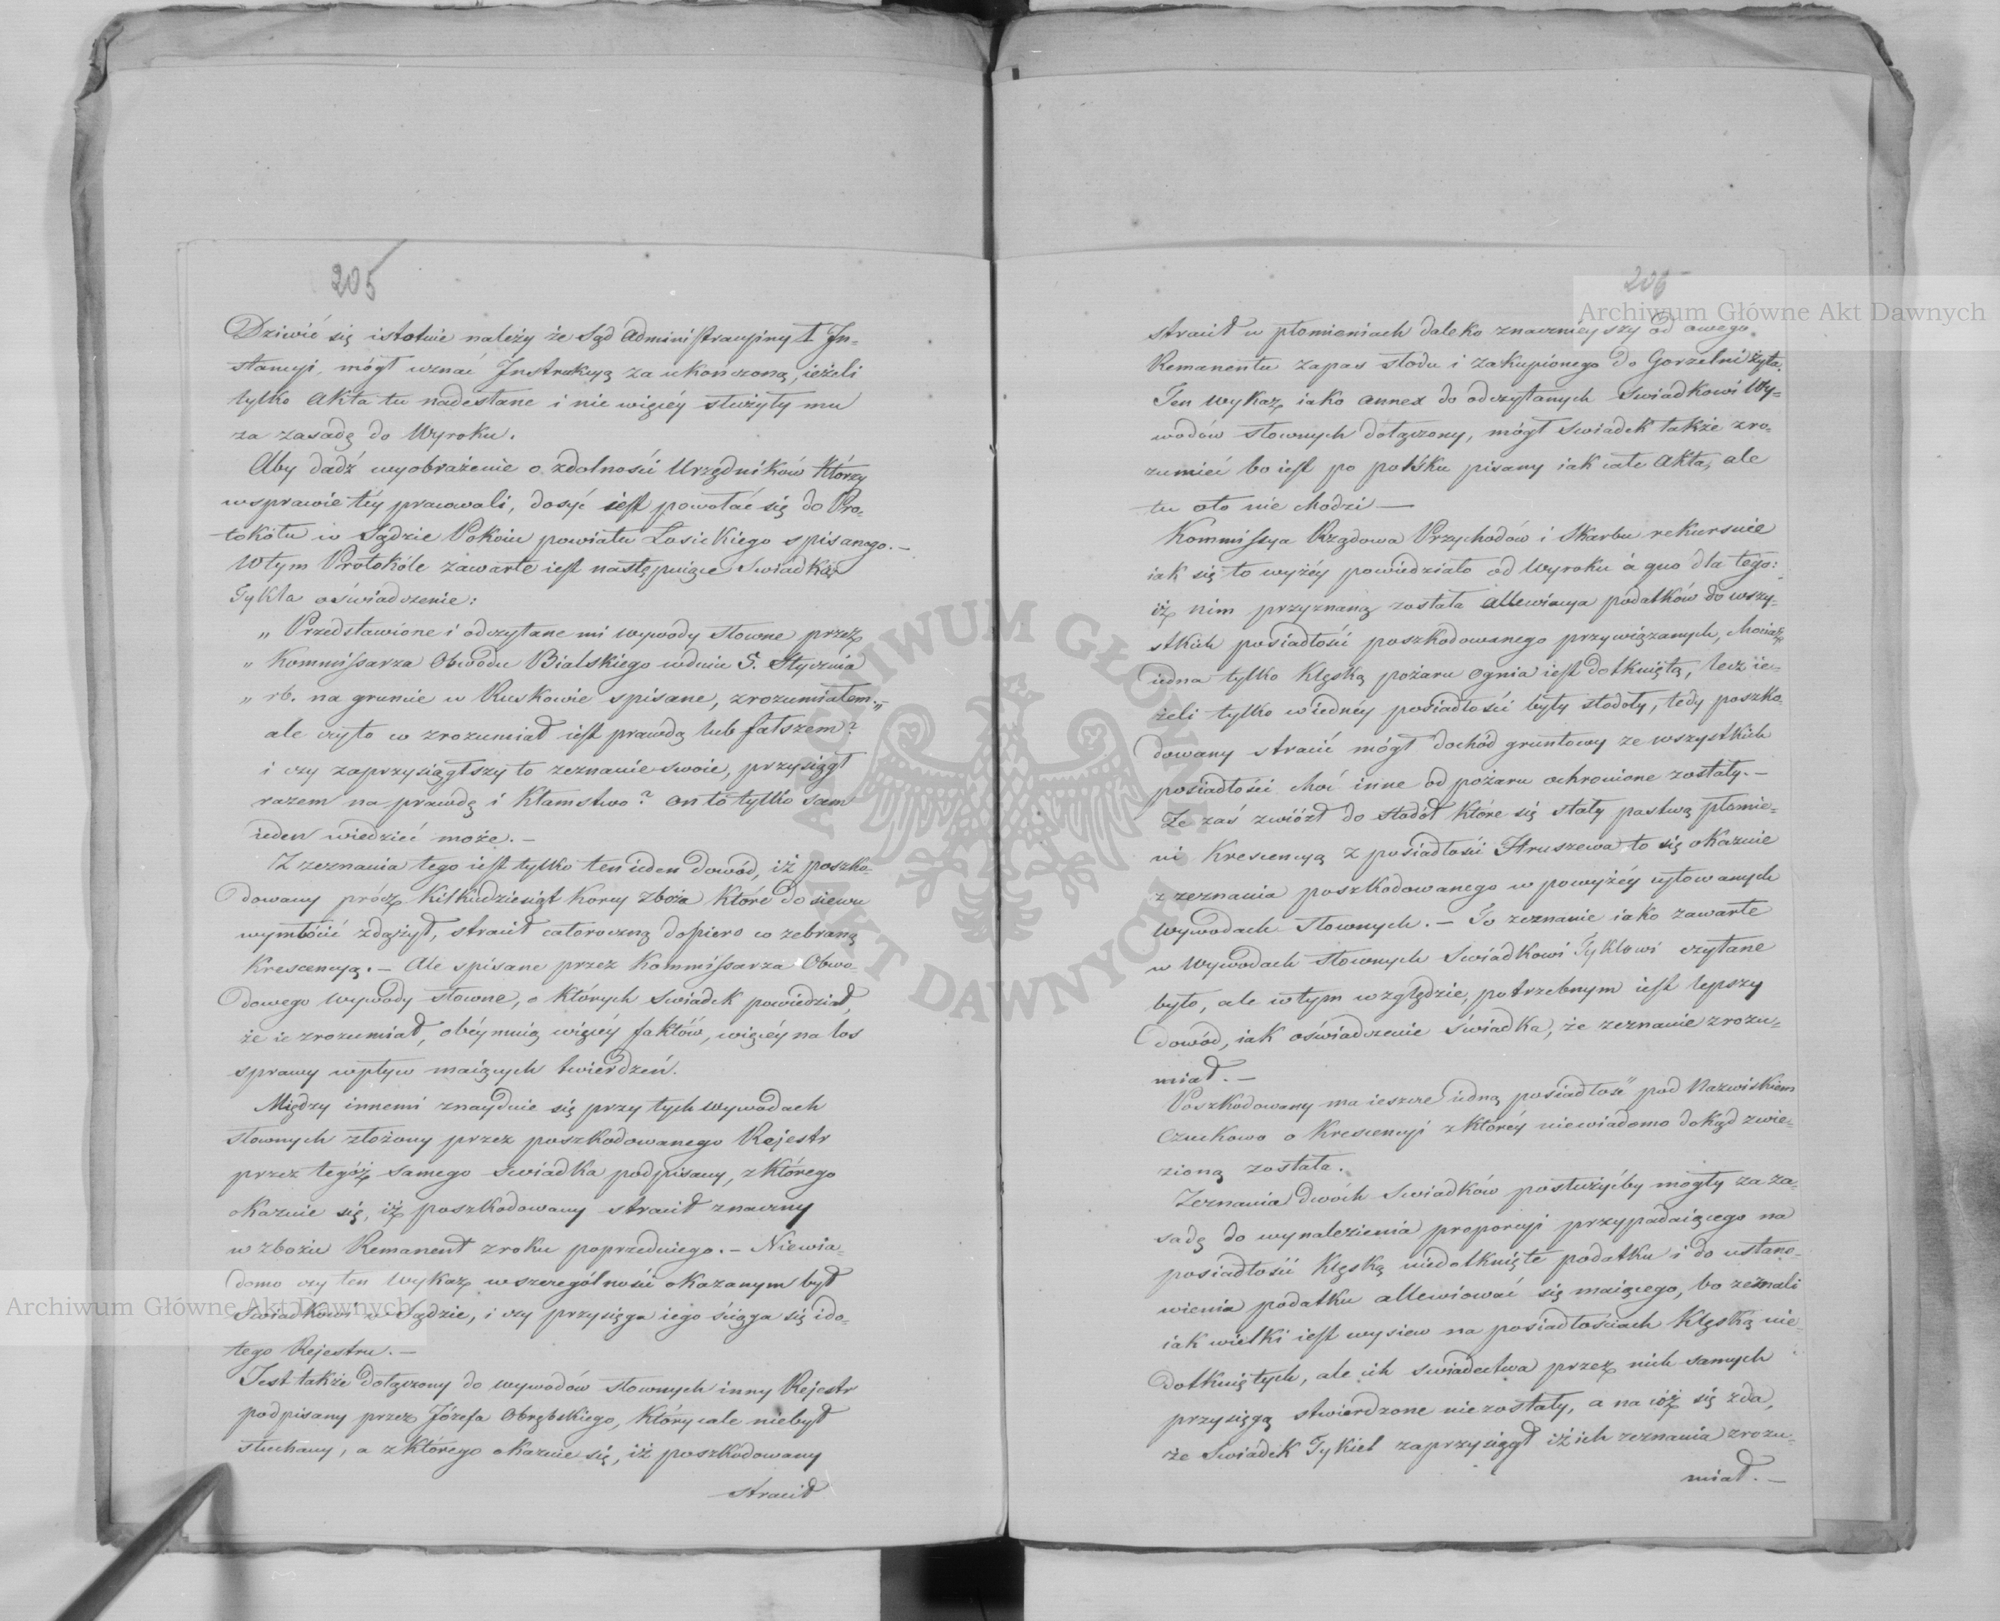 205
Dziwić się istotnie należy że Sąd Administracyiny I In-
stancyi, mógł uznać Instrukcyą za ukończoną, ieżeli
tylko Akta tu nadesłane i nie więcéy służyły mu
za zasadę do Wyroku.
Aby dadź wyobrażenie o zdolności Urzędników którzy
w sprawie téy pracowali, dosyć iest powołać się do Pro-
tokółu w Sądzie Pokoiu powiatu Losickiego spisanego.—
W tym Protokóle zawarte iest następuiące Swiadka
Tykla oświadczenie:
„ Przedstawione i odczytane mi wywody słowne przez
„ Kommissarza Obwodu Bialskiego w dniu 5. Stycznia
„ rb. na gruncie w Ruskowie spisane, zrozumiałem.„
ale czy to co zrozumiał iest prawdą lub fałszem?
i czy zaprzysiągłszy to zeznanie swoie, przysiągł
razem na prawdę i kłamstwo? on to tylko sam
ieden wiedzieć może.—
Z zeznania tego iest tylko ten ieden dowód, iż poszko-
dowany prócz kilkudziesiąt korcy zboża które do siewu
wymłócić zdążył, stracił całoroczną dopiero co zebraną
Krescencyą.— Ale spisane przez Kommissarza Obwo-
dowego wywody słowne, o których Swiadek powiedział,
że ie zrozumiał, obéymuią więcéy faktów, więcéy na los
sprawy wpływ maiących twierdzeń.
Między innemi znayduie się przy tych wywodach
słownych złożony przez poszkodowanego Rejestr
przez tegóż samego Swiadka podpisany, z którego
okazuie się, iż poszkodowany stracił znaczny
w zbożu Remanent z roku poprzedniego.— Niewia-
domo czy ten Wykaz w szczególności okazanym był
Swiadkowi w Sądzie, i czy przysięga iego ściąga się i do
tego Rejestru.—
Jest także dołączony do wywodów słownych inny Rejestr
podpisany przez Józefa Obrębskiego, który cale niebył
słuchany, a z którego okazuie się, iż poszkodowany
stracił
206
stracił w płomieniach daleko znacznieyszy od owego
Remanentu zapas słodu i zakupionego do Gorzelni żyta.
Ten wykaz iako annex do odczytanych Swiadkowi Wy-
wodów słownych dołączony, mógł Swiadek także zro-
zumieć bo iest po polsku pisany iak całe Akta, ale
tu oto nie chodzi —
Kommissya Rządowa Przychodów i Skarbu rekursuie
iak się to wyżéy powiedziało od Wyroku á quo dla tego:
iż nim przyznaną została allewiacya podatków do wszy-
stkich posiadłości poszkodowanego przywiązanych, chociaż
iedna tylko klęską pożaru ognia iest dotkniętą, lecz ie-
żeli tylko w iednéy posiadłości były stodoły, tedy poszko-
dowany stracić mógł dochód gruntowy ze wszystkich
posiadłości choć inne od pożaru ochronione zostały.—
Ze zaś zwiózł do stodół które się stały pastwą płomie-
ni Krescencyą z posiadłości Hruszewa to się okazuie
z zeznania poszkodowanego w powyżéy cytowanych
Wywodach słownych.— To zeznanie iako zawarte
w Wywodach słownych Swiadkowi Tyklowi czytane
było, ale w tym względzie, potrzebnym iest lepszy
dowód, iak oświadczenie Swiadka, że zeznanie zrozu-
miał.—
Poszkodowany ma ieszcze iedną posiadłość pod Nazwiskiem
Czuchowo o Krescencyi z któréy niewiadomo dokąd zwie-
zioną została.
Zeznania dwóch Swiadków posłużyćby mogły za za-
sadę do wynalezienia proporcyi przypadaiącego na
posiadłości klęską niedotknięte podatku i do ustano-
wienia podatku allewiować się maiącego, bo zeznali
iak wielki iest wysiew na posiadłościach klęską nie-
dotkniętych, ale ich świadectwa przez nich samych
przysięgą stwierdzone niezostały, a na cóż się zda,
że Swiadek Tykiel zaprzysiągł iż ich zeznania zrozu-
miał.—
Archiwum Główne Akt Dawnych
Archiwum Główne Akt Dawnych
ARCHIWUM GŁÓWNE AKT DAWNYCH